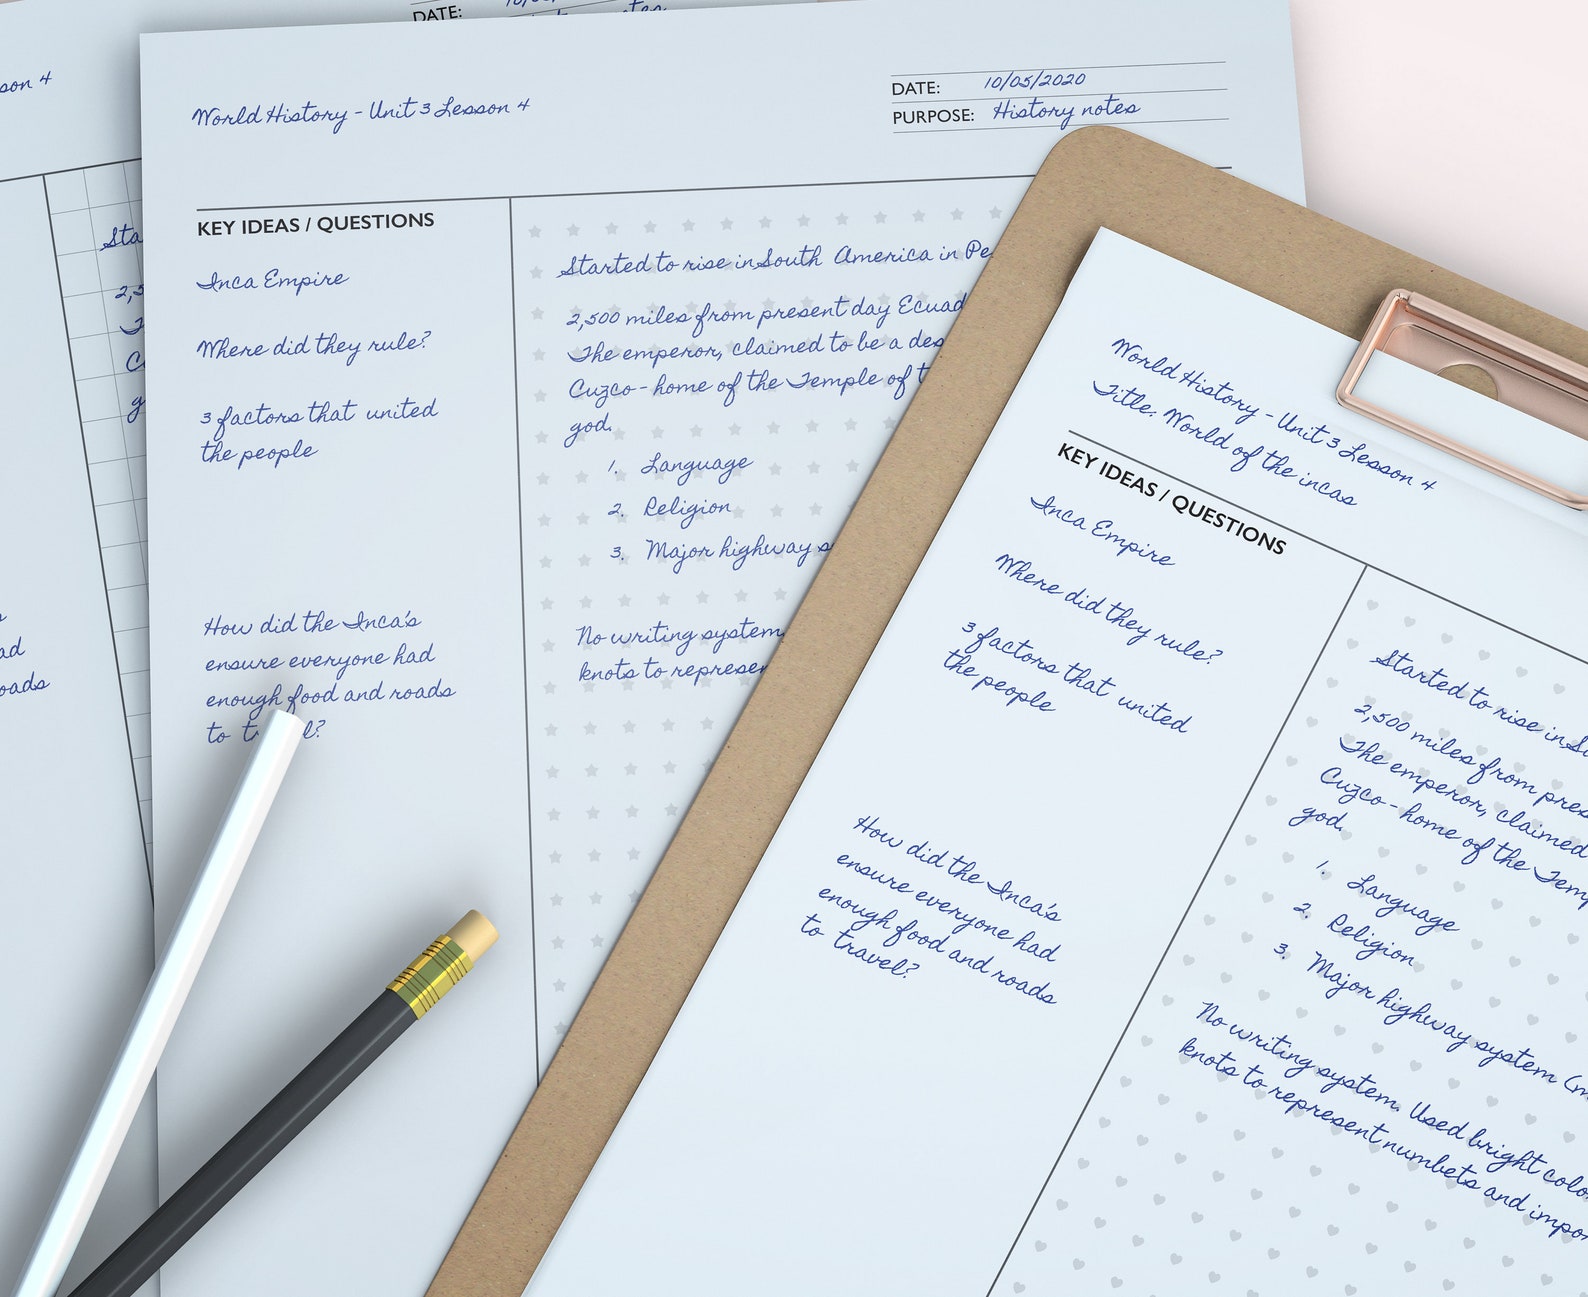 son 4
Sta
2,5
T
C
g
ad
oads
DATE:
World History - Unit 3 Lesson 4
DATE: 10/05/2020
PURPOSE: History notes
KEY IDEAS / QUESTIONS
Inca Empire
Where did they rule?
3 factors that united
the people
How did the Inca's
ensure everyone had
enough food and roads
to
Started to rise in South America in Pe
2,500 miles from present day Ecuad
The emperor, claimed to be a des
Cuzco - home of the Temple of t
god.
1. Language
2. Religion
3. Major highway s
No writing system.
knots to represen
World History - Unit 3 Lesson 4
Title: World of the incas
KEY IDEAS / QUESTIONS
Inca Empire
Where did they rule?
3 factors that united
the people
How did the Inca's
ensure everyone had
enough food and roads
to travel?
Started to rise in S
2,500 miles from pres
The emperor, claimed
Cuzco - home of the Tem
god.
1. Language
2. Religion
3. Major highway system (m
No writing system. Used bright colo
knots to represent numbets and impo